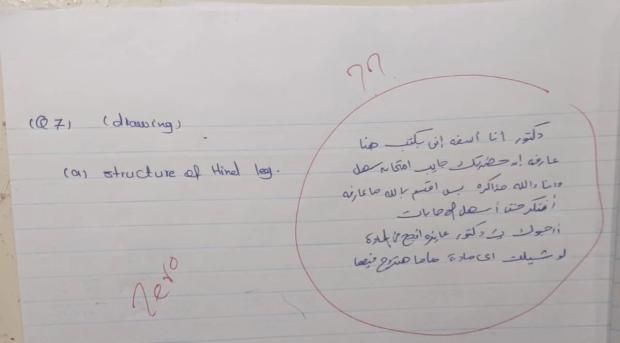 ؟؟
(Q7) (drawing)
(a) structure of Hind leg.
دكتور أنا أسفه إني بكتب هنا
عارفه إن حضرتك جايب امتحان سهل
وانا والله مذاكره بس اقسم بالله ما عارفه
أفتكر حتى أسهل الإجابات
أرجوك يا دكتور عايزه انجح في المادة
لو شيلت اى مادة ماما هتروح فيها
Zero